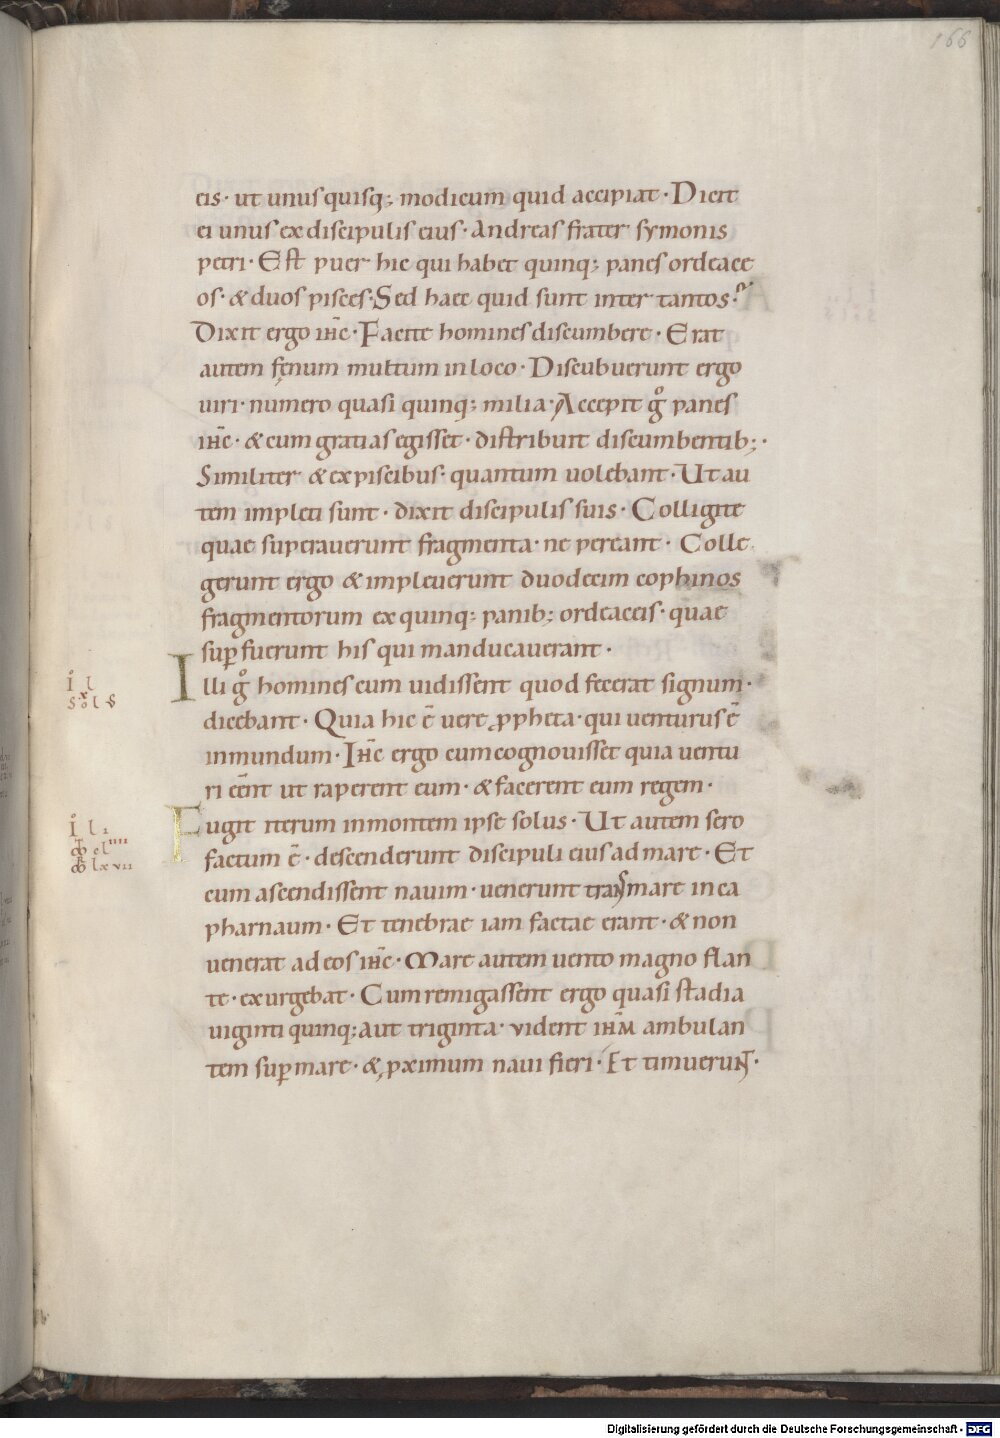 166
eis· ut unus quisq; modicum quid accipiat· Dicit
ei unus ex discipulis eius· Andreas frater symonis
petri· Est puer hic qui habet quinq; panes ordeace
os· & duos pisces· Sed haec quid sunt inter tantos·
Dixit ergo ihc̄· Facite homines discumbere· Erat
autem fęnum multum in loco· Discubuerunt ergo
uiri· numero quasi quinq; milia· Accepit g̊ panes
ihc̄· & cum gratias egisset· distribuit discumbentib;·
Similiter & ex piscibus· quantum uolebant· Ut au
tem impleti sunt· dixit discipulis suis· Colligite
quae superauerunt fragmenta· ne pereant· Colle
gerunt ergo & impleuerunt duodecim cophinos
fragmentorum ex quinq; panib; ordeaceis· quae
sup̄fuerunt his qui manducauerant·
Illi g̊ homines cum uidissent quod fecerat signum·
dicebant· Quia hic ē uere ꝓpheta· qui uenturus ē
in mundum· Ihc̄ ergo cum cognouisset quia uentu
ri eēnt ut raperent eum· & facerent eum regem·
Fugit iterum in montem ipse solus· Ut autem sero
factum ē· descenderunt discipuli eius ad mare· Et
cum ascendissent nauim· uenerunt trans mare in ca
pharnaum· Et tenebrae iam factae erant· & non
uenerat ad eos ihc̄· Mare autem uento magno flan
te· exurgebat· Cum remigassent ergo quasi stadia
uiginti quinq; aut triginta· vident ihm̄ ambulan
tem sup̄ mare· & ꝓximum naui fieri· Et timuerunt·
Digitalisierung gefördert durch die Deutsche Forschungsgemeinschaft · DFG